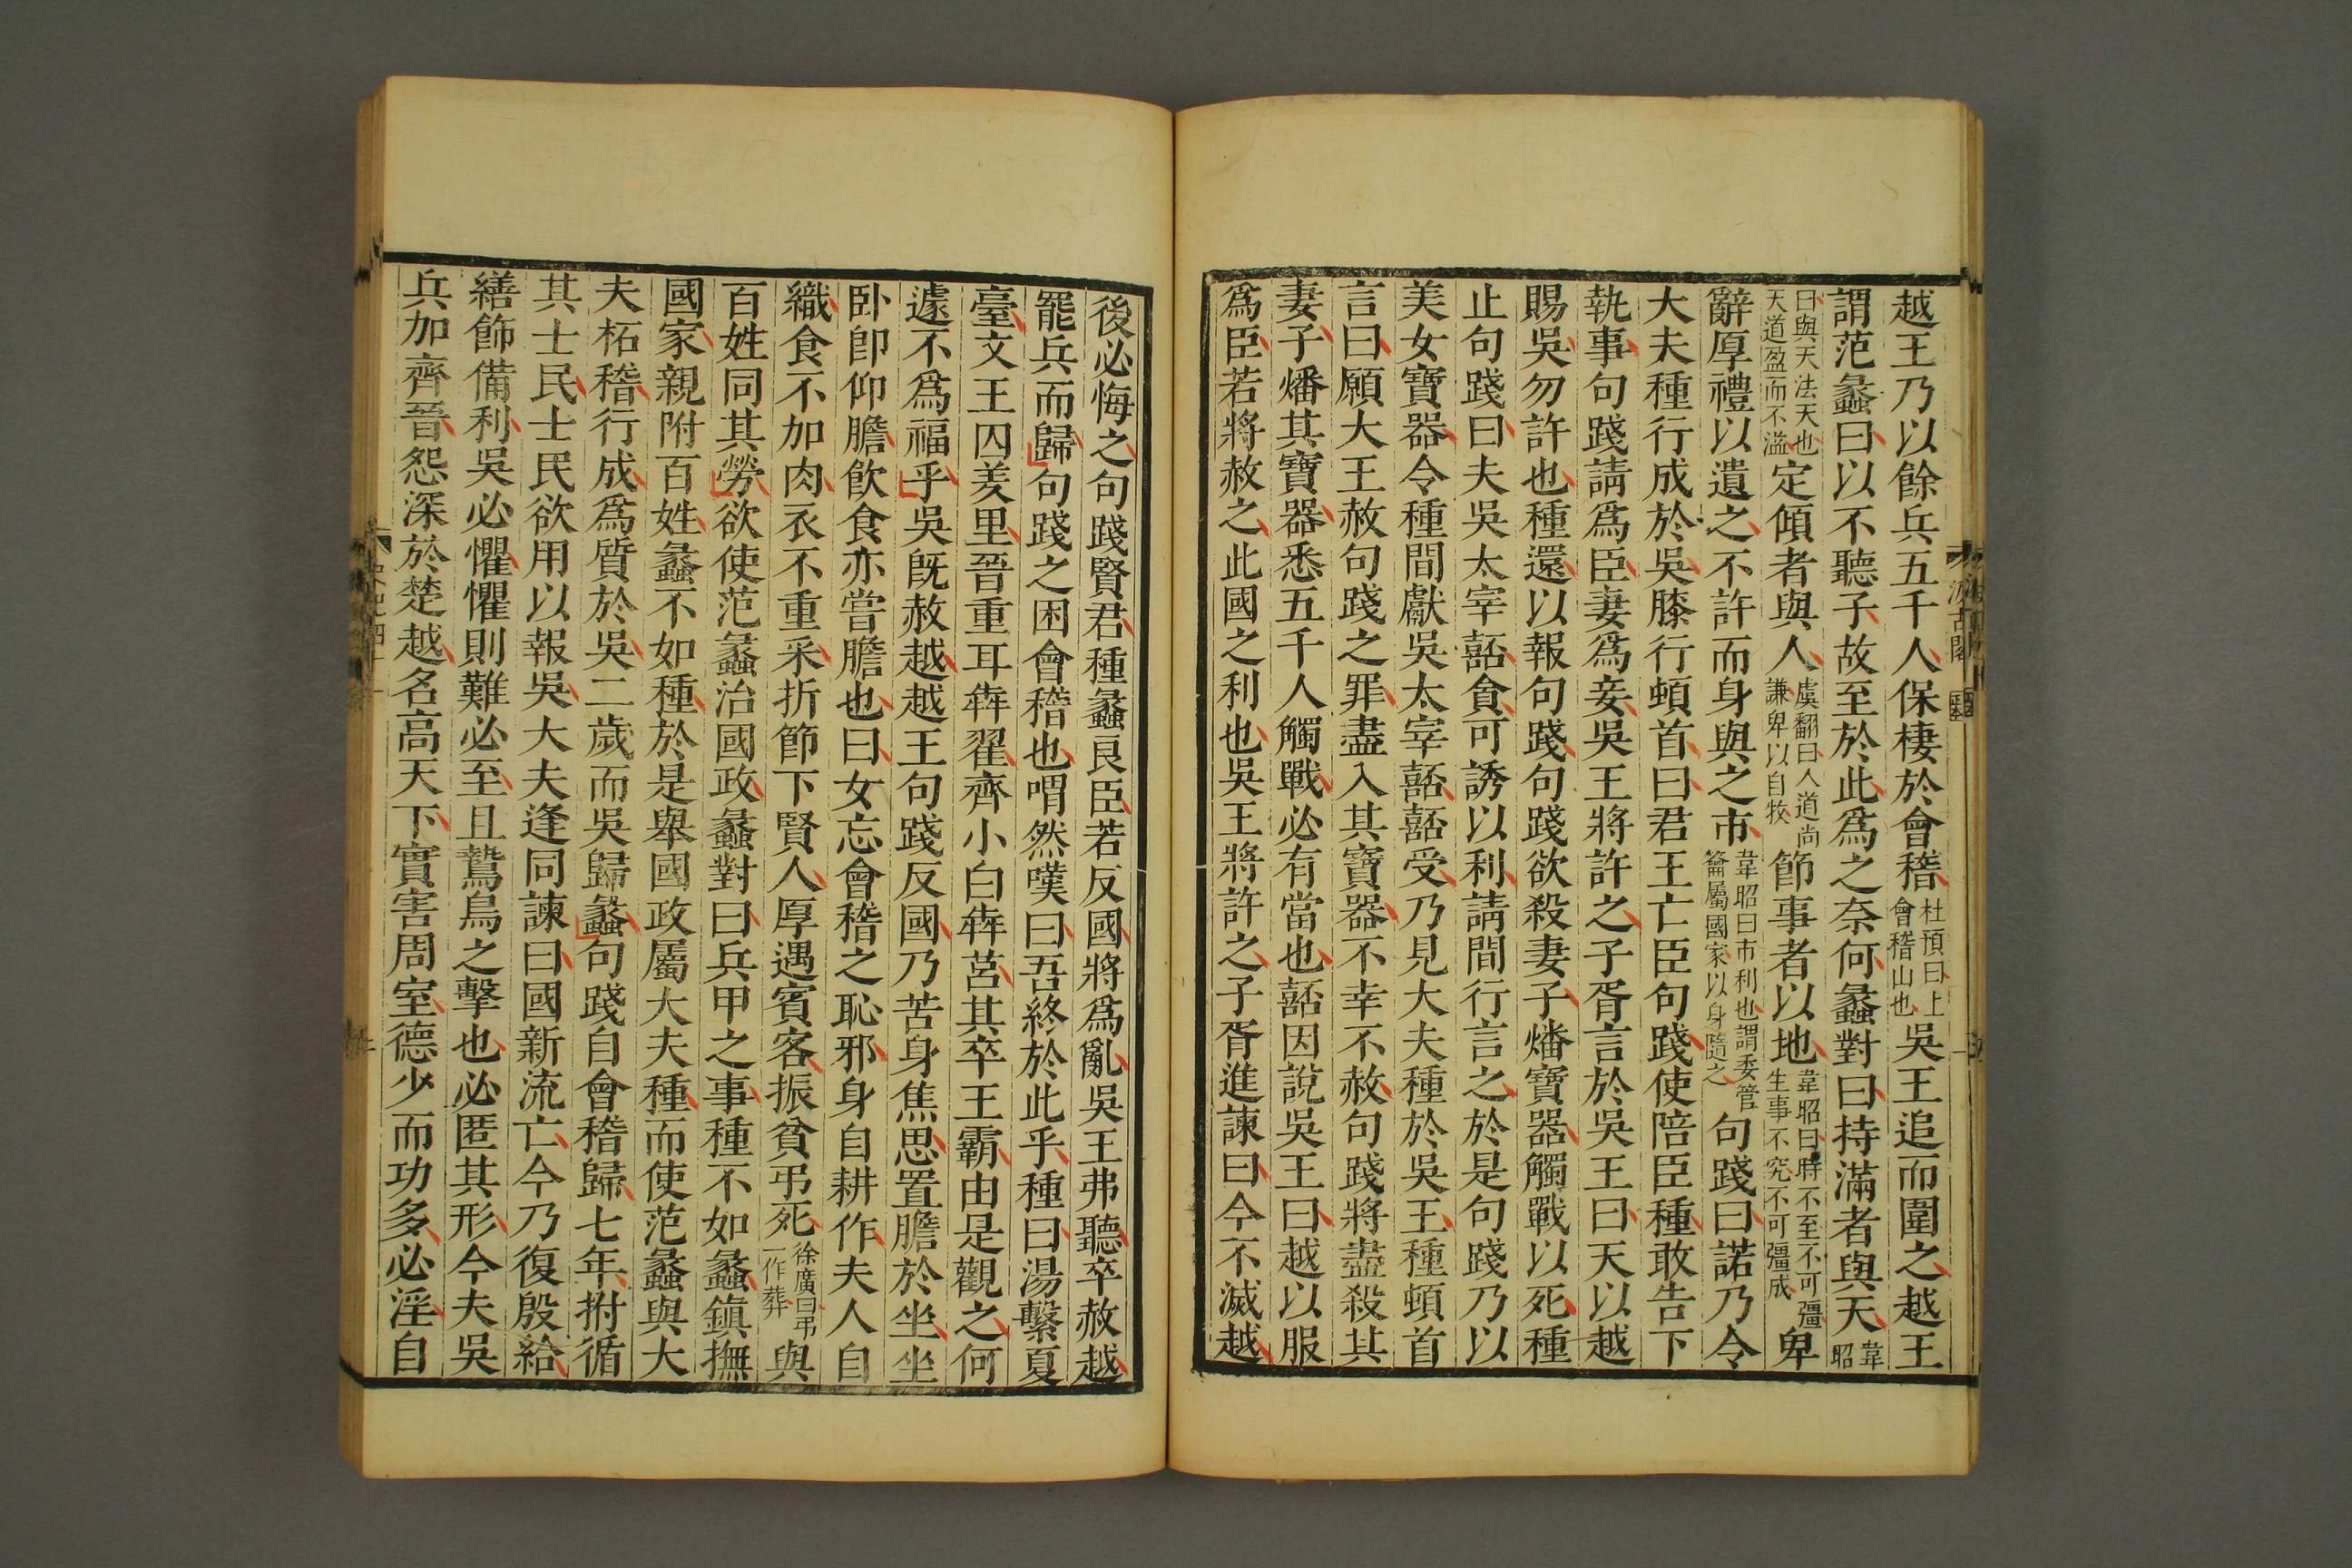 越王乃以餘兵五千人保棲於會稽杜預曰上會稽山也吳王追而圍之越王
謂范蠡曰以不聽子故至於此爲之奈何蠡對曰持滿者與天韋昭
曰與天法天也天道盈而不溢定傾者與人虞翻曰人道尚謙卑以自牧節事者以地韋昭曰時不至不可彊生事不究不可彊成卑
辭厚禮以遺之不許而身與之市韋昭曰市利也謂委管籥屬國家以身隨之句踐曰諾乃令
大夫種行成於吳膝行頓首曰君王亡臣句踐使陪臣種敢告下
執事句踐請爲臣妻爲妾吳王將許之子胥言於吳王曰天以越
賜吳勿許也種還以報句踐句踐欲殺妻子燔寶器觸戰以死種
止句踐曰夫吳太宰嚭貪可誘以利請間行言之於是句踐乃以
美女寶器令種間獻吳太宰嚭嚭受乃見大夫種於吳王種頓首
言曰願大王赦句踐之罪盡入其寶器不幸不赦句踐將盡殺其
妻子燔其寶器悉五千人觸戰必有當也嚭因說吳王曰越以服
爲臣若將赦之此國之利也吳王將許之子胥進諫曰今不滅越
後必悔之句踐賢君種蠡良臣若反國將爲亂吳王弗聽卒赦越
罷兵而歸句踐之困會稽也喟然嘆曰吾終於此乎種曰湯繫夏
臺文王囚羑里晉重耳犇翟齊小白犇莒其卒王霸由是觀之何
遽不爲福乎吳旣赦越越王句踐反國乃苦身焦思置膽於坐坐
臥卽仰膽飮食亦嘗膽也曰女忘會稽之恥邪身自耕作夫人自
織食不加肉衣不重采折節下賢人厚遇賓客振貧弔死徐廣曰弔一作葬與
百姓同其勞欲使范蠡治國政蠡對曰兵甲之事種不如蠡鎭撫
國家親附百姓蠡不如種於是舉國政屬大夫種而使范蠡與大
夫柘稽行成爲質於吳二歲而吳歸蠡句踐自會稽歸七年拊循
其士民士民欲用以報吳大夫逢同諫曰國新流亡今乃復殷給
繕飾備利吳必懼懼則難必至且鷙鳥之擊也必匿其形今夫吳
兵加齊晉怨深於楚越名高天下實害周室德少而功多必淫自
汲古閣
史記四十一